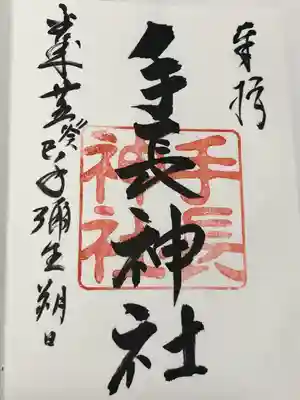 奉拝
手長神社
手長
神社
癸巳年彌生朔日